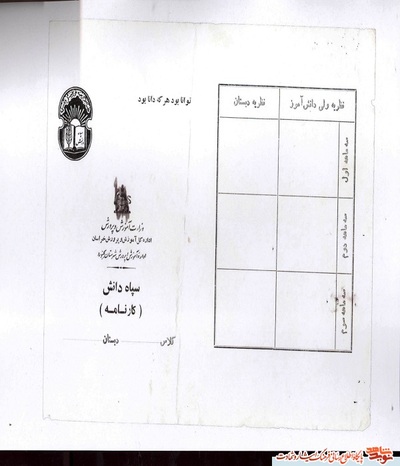 توانا بود هر که دانا بود
وزارت آموزش و پرورش
اداره کل آموزش و پرورش خراسان
اداره آموزش و پرورش شهرستان
سپاه دانش
( کارنامه )
کلاس دبستان
نظریه ولی دانش آموز
نظریه دبستان
سه ماهه اول
سه ماهه دوم
سه ماهه سوم